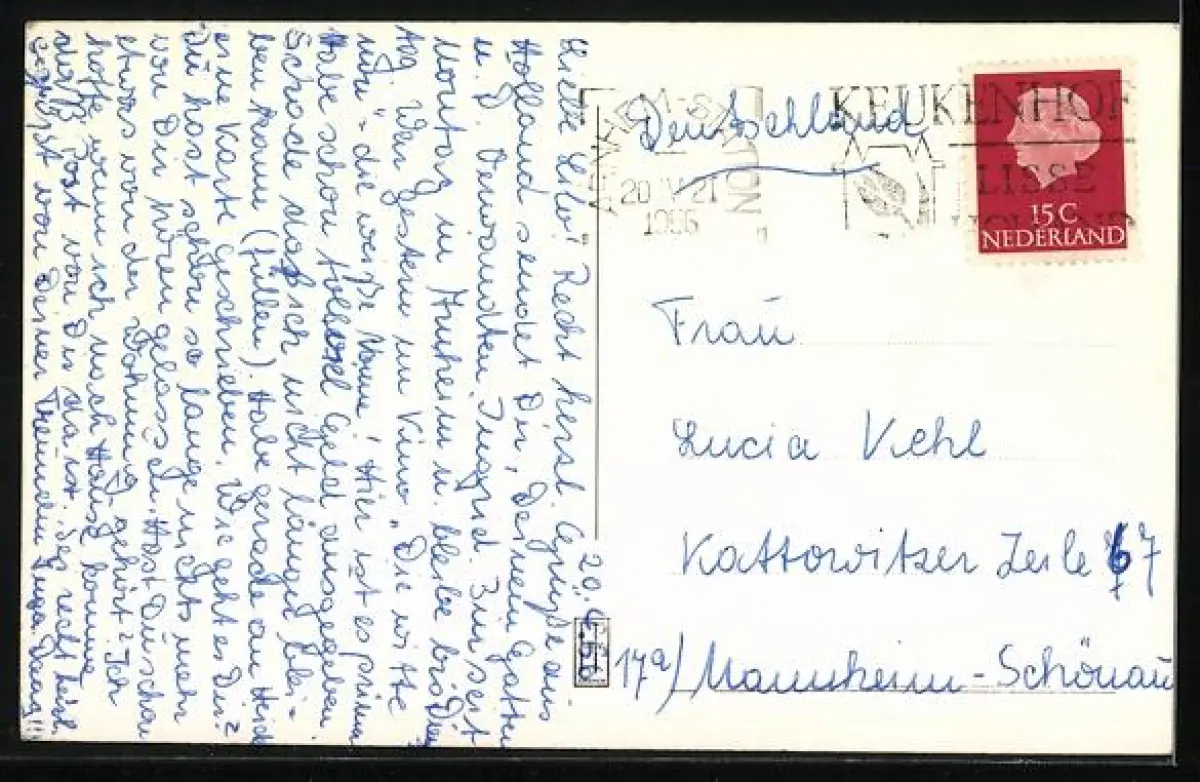 20.4.56
Liebe Lilo! Recht herzl. Grüße aus
Holland sendet Dir, Deinem Gatten
u. d. Verwandten Ingrid. Bin seit
Montag in Arnheim u. bleibe bis Dien
tag. War gestern im Kino „Die
rüh" die weiße Nonne! Hier ist es prima
Habe schon soviel Geld ausgegeben.
Schade daß ich nicht länger blei-
ben kann (füllen). Habe gerade an Heidi
eine Karte geschrieben. Wie geht es Dir?
Du hast schon so lange nichts mehr
von Dir hören gelassen. Hast Du schon
etwas von der Wohnung gehört? Ich
hoffe wenn ich nach Haus komme
daß Post von Dir da ist. Sei recht herzl.
gegrüßt von Deiner Freundin Inga. Daag!!
Deutschland
ARNHEM-S
20 IV 21
1956
KEUKENHOF
LISSE
HOLLAND
15 C
NEDERLAND
Frau
Lucia Vehl
Kattowitzer Zeile 67
17a) Mannheim-Schönau